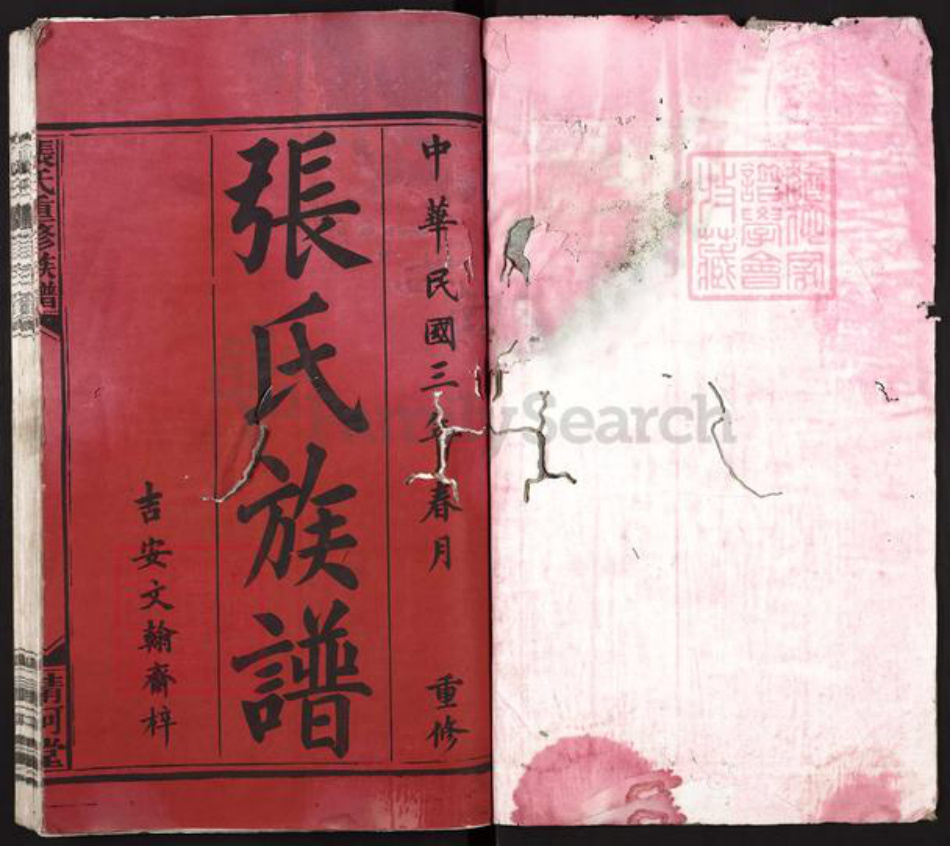 中華民國三年春月 重修
張氏族譜
吉安文翰齋梓
張氏重修族譜
清河堂
譜學會
收藏
FamilySearch